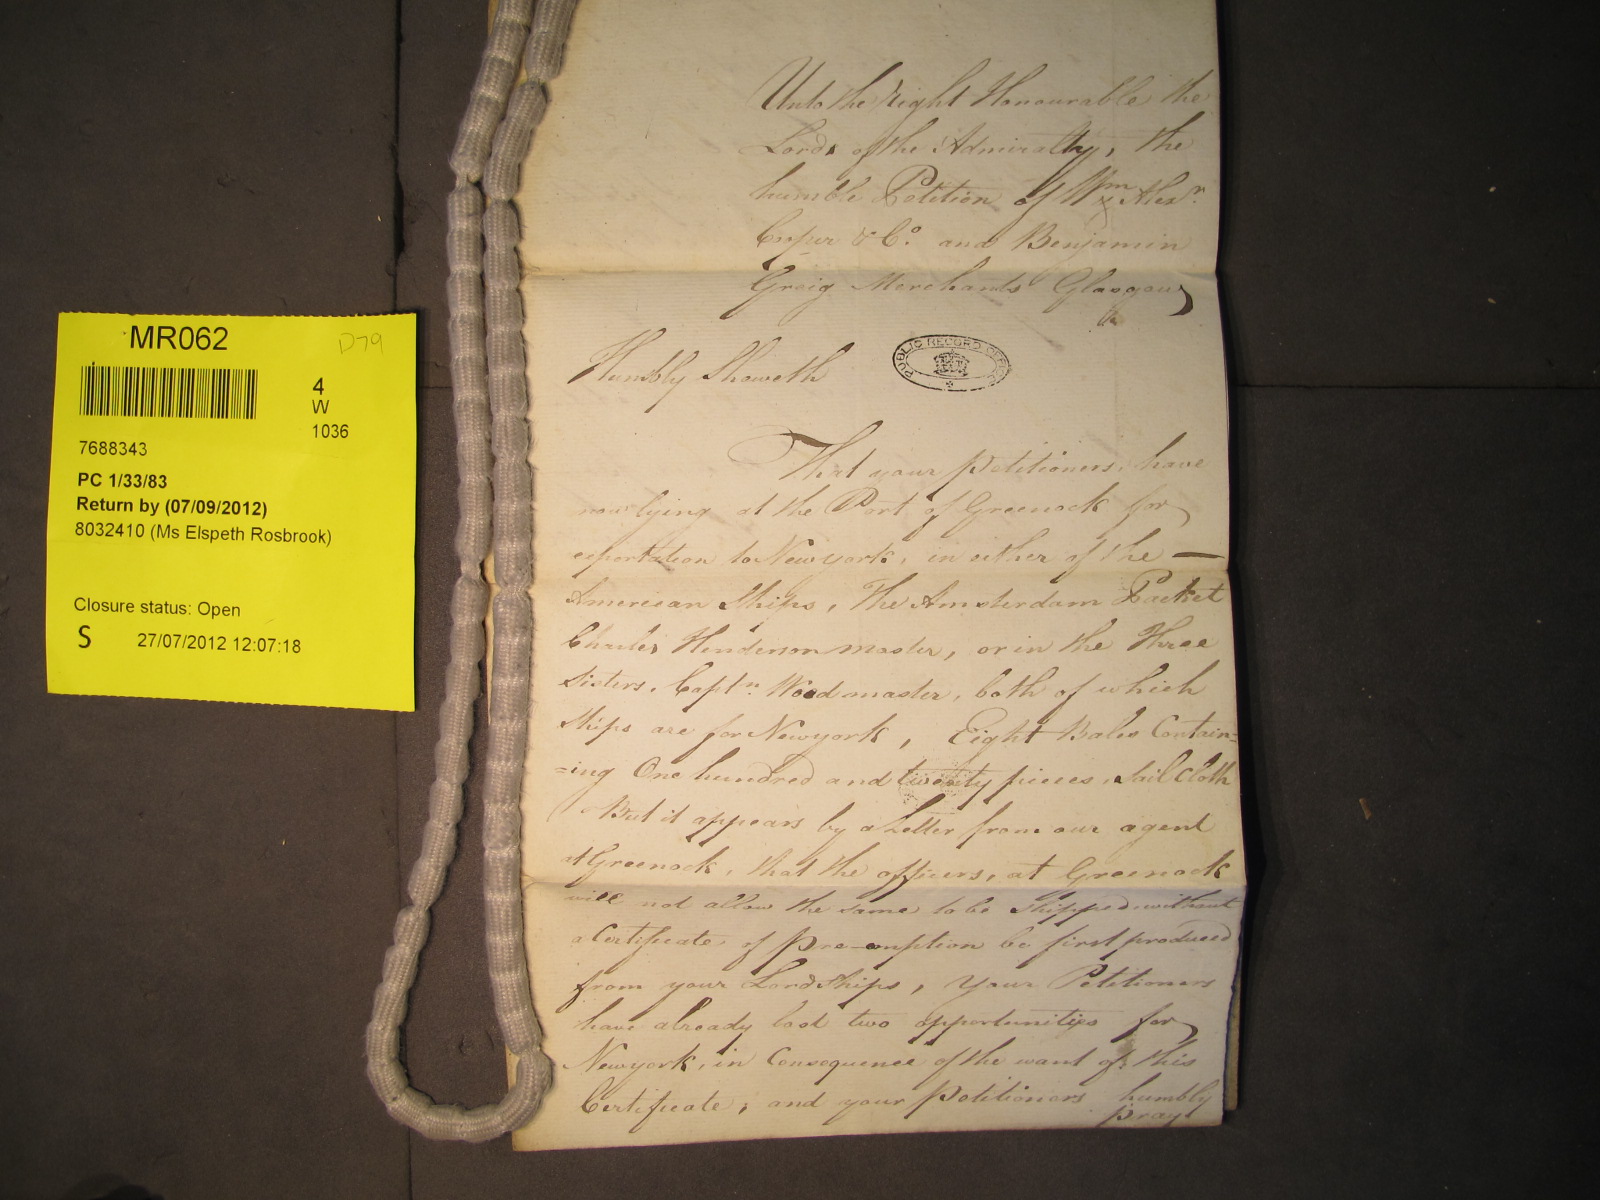 MR062
D79
4
W
1036
7688343
PC 1/33/83
Return by (07/09/2012)
8032410 (Ms Elspeth Rosbrook)
Closure status: Open
S 27/07/2012 12:07:18
Unto the Right Honourable the
Lords of the Admiralty, the
humble Petition of Wm & Alexr.
Cooper & Co. and Benjamin
Greig Merchants Glasgow
Humbly Sheweth
PUBLIC RECORD OFFICE
That your petitioners, have
now lying at the Port of Greenock for
exportation to Newyork, in either of the —
American Ships, The Amsterdam Packet
Charles Henderson master, or in the Three
Sisters, Captn. Wood master, both of which
Ships are for Newyork, Eight Bales Contain=
=ing One hundred and twenty pieces, Sail Cloth
But it appears by a Letter from our agent
at Greenock, that the officers, at Greenock
will not allow the same to be Shipped without
a Certificate of Pre-emption be first produced
from your LordShips, Your Petitioners
have already lost two opportunities for
Newyork, in Consequence of the want of this
Certificate; and your Petitioners humbly
pray